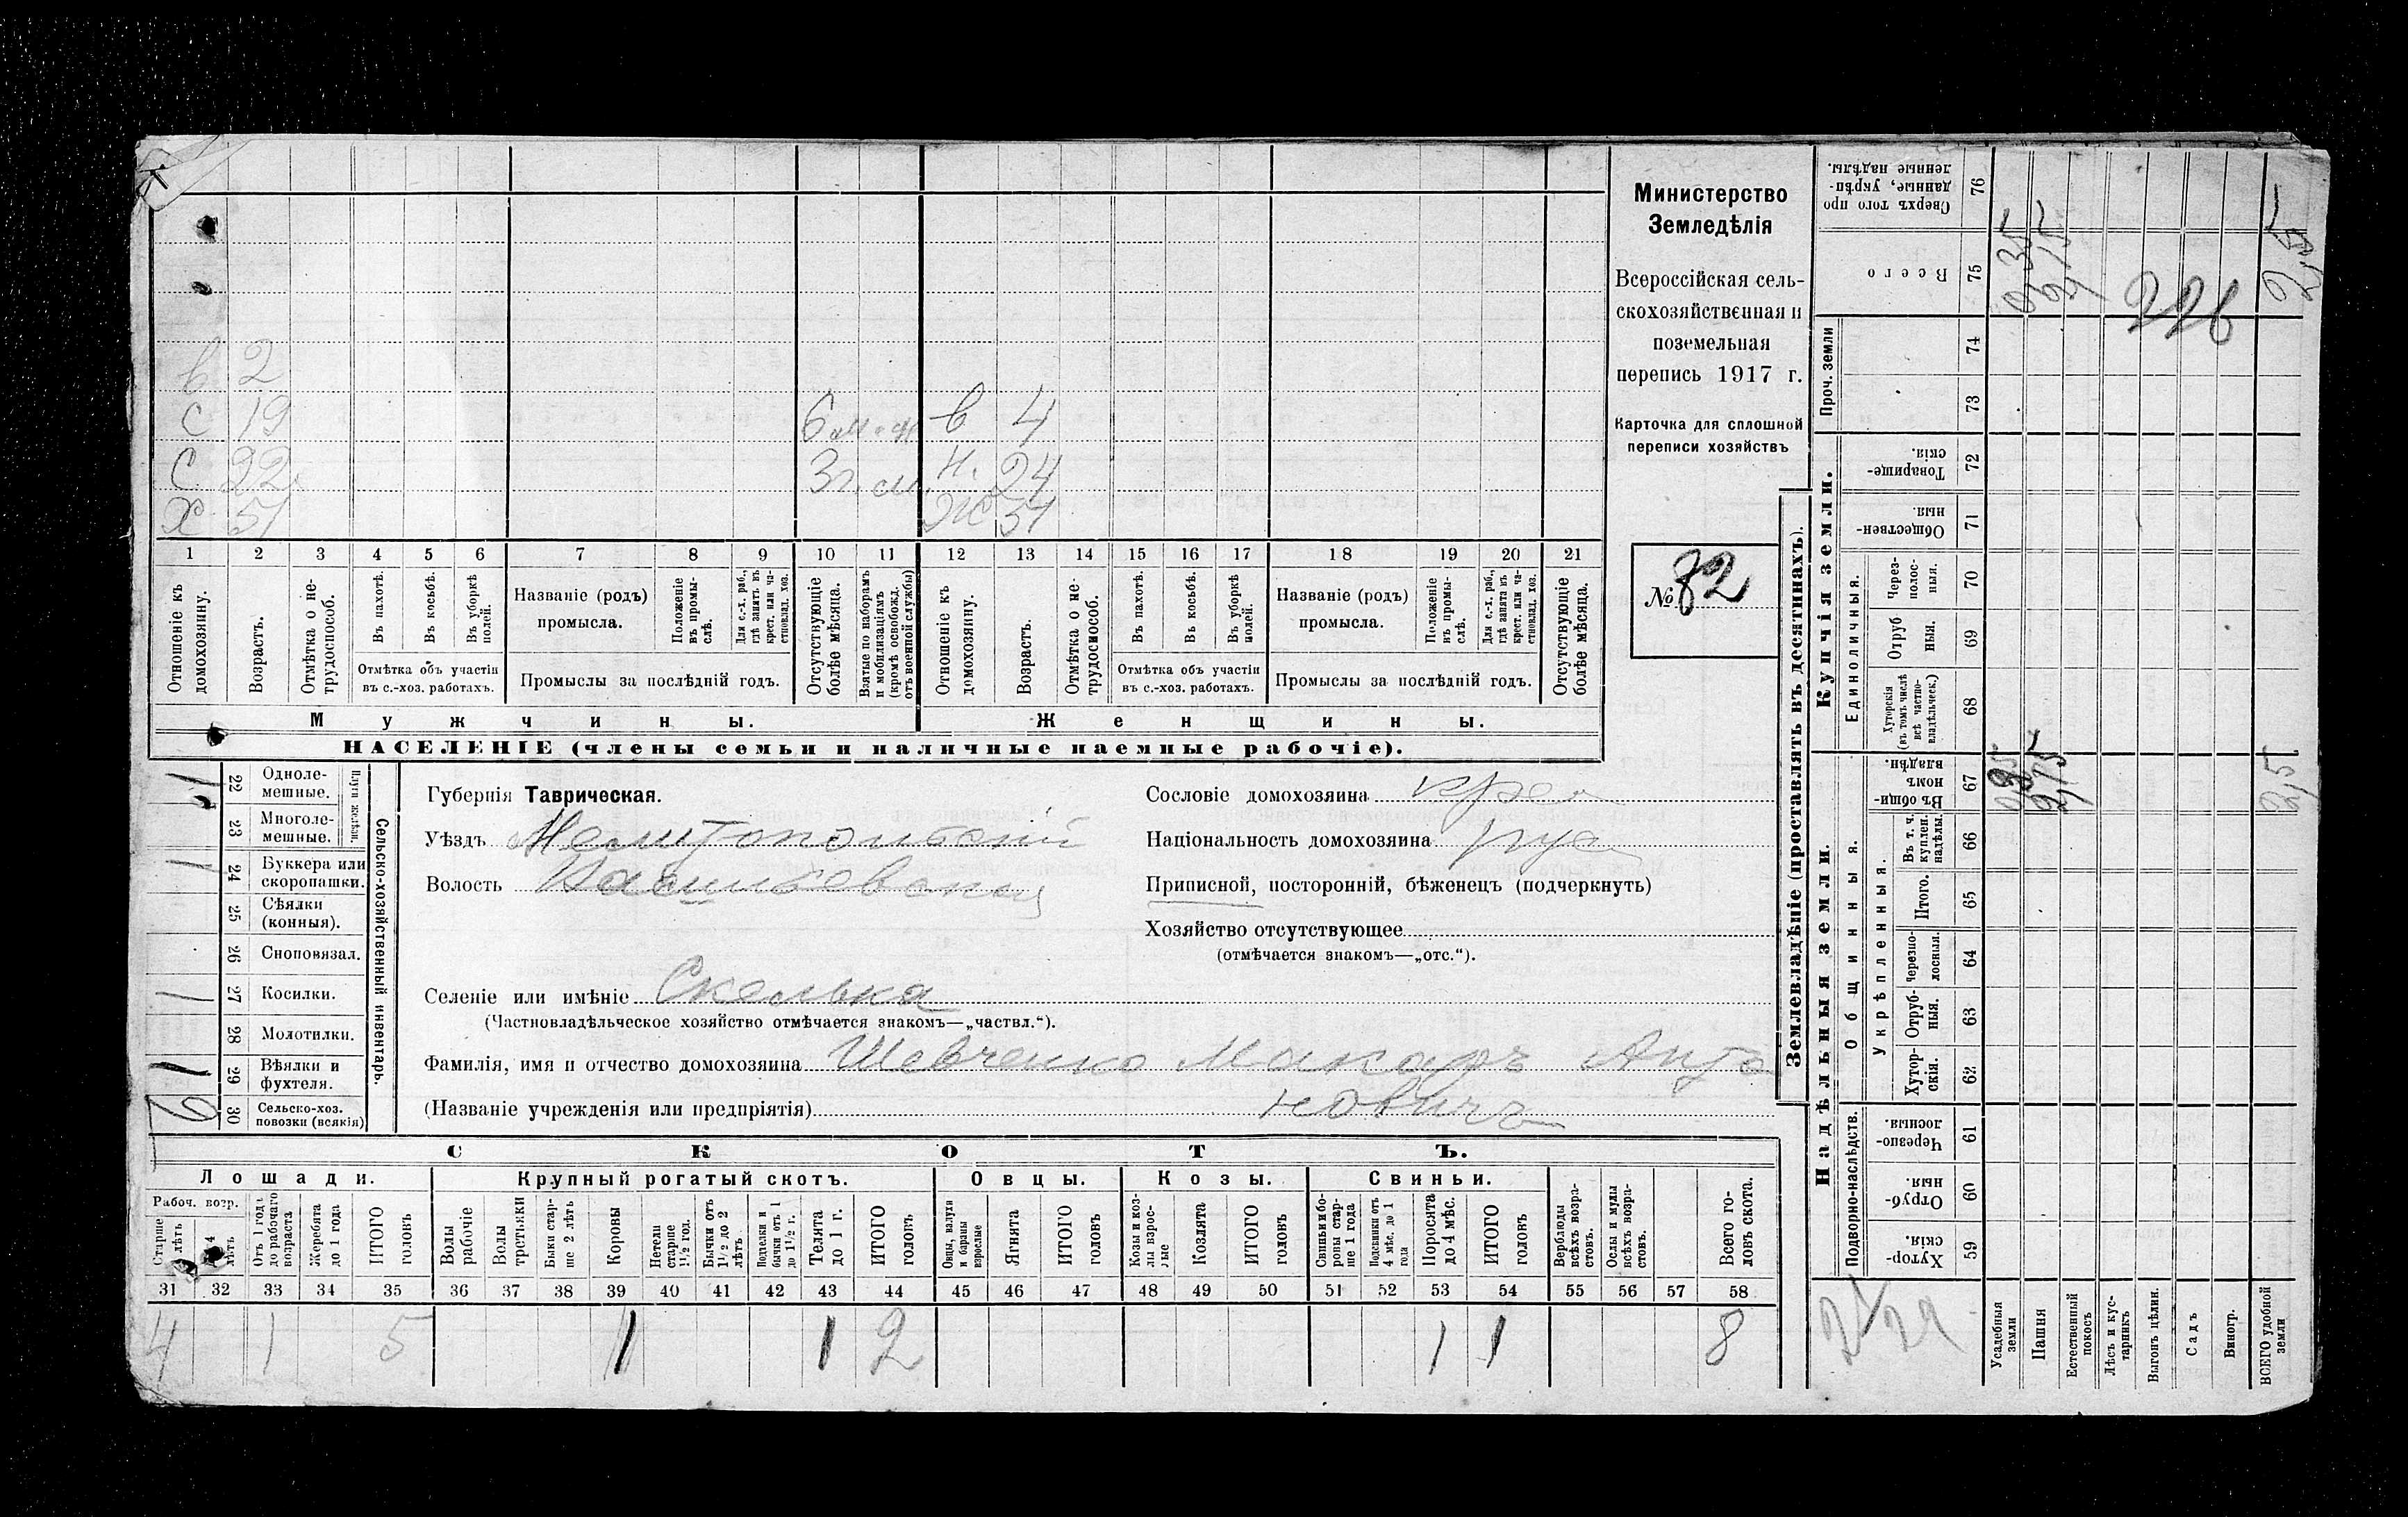 в 2
С 19 6 м. в 4
С 22 3 г. м. н. 24
Х 51 Ж 51
1 2 3 4 5 6 7 8 9 10 11 12 13 14 15 16 17 18 19 20 21
Отношеніе къ домохозяину.
Возрастъ.
Отмѣтка о нетрудоспособ.
Въ пахотѣ.
Въ косьбѣ.
Въ уборкѣ полей.
Отмѣтка объ участіи
въ с.-хоз. работахъ.
Названіе (родъ)
промысла.
Положеніе въ промыслѣ.
Для с.-х. раб., гдѣ занятъ въ крест. или частновлад. хоз.
Промыслы за послѣдній годъ.
Отсутствующіе болѣе мѣсяца.
Взятые по наборамъ и мобилизаціямъ (кромѣ освобожд. отъ военной службы)
Отношеніе къ домохозяину.
Возрастъ.
Отмѣтка о нетрудоспособ.
Въ пахотѣ.
Въ косьбѣ.
Въ уборкѣ полей.
Отмѣтка объ участіи
въ с.-хоз. работахъ.
Названіе (родъ)
промысла.
Положеніе въ промыслѣ.
Для с.-х. раб., гдѣ занята въ крест. или частновлад. хоз.
Промыслы за послѣдній годъ.
Отсутствующіе болѣе мѣсяца.
Мужчины. Женщины.
НАСЕЛЕНІЕ (члены семьи и наличные наемные рабочіе).
Министерство
Земледѣлія
Всероссійская сель-
скохозяйственная и
поземельная
перепись 1917 г.
Карточка для сплошной
переписи хозяйствъ
№ 82
Сельско-хозяйственный инвентарь.
Плуги желѣзн.
22 Одноле-
мешные.
23 Многоле-
мешные.
1 24 Буккера или
скоропашки.
25 Сѣялки
(конныя).
26 Сноповязал.
1 27 Косилки.
28 Молотилки.
1 29 Вѣялки и
фухтеля.
30 Сельско-хоз.
повозки (всякія)
Губернія Таврическая.
Уѣздъ Мелитопольскій
Волость Васильевская
Селеніе или имѣніе Скелька
(Частновладѣльческое хозяйство отмѣчается знакомъ—„частвл.“).
Фамилія, имя и отчество домохозяина Шевченко Макаръ Анто
(Названіе учрежденія или предпріятія) новичъ
Сословіе домохозяина крес
Національность домохозяина рус
Приписной, посторонній, бѣженецъ (подчеркнуть)
Хозяйство отсутствующее
(отмѣчается знакомъ—„отс.“).
СКОТЪ.
Лошади. Крупный рогатый скотъ. Овцы. Козы. Свиньи.
Рабоч. возр.
Старше лѣтъ
4 лѣтъ
Отъ 1 года до рабочаго возраста
Жеребята до 1 года
ИТОГО головъ
Волы рабочіе
Волы третьяки
Быки старше 2 лѣтъ
Коровы
Нетели старше 1½ год.
Бычки отъ 1½ до 2 лѣтъ
Подтелки и бычки отъ 1 до 1½ г.
Телята до 1 г.
ИТОГО головъ
Овцы, валухи и бараны взрослые
Ягнята
ИТОГО головъ
Козы и козлы взрослые
Козлята
ИТОГО головъ
Свиньи и боровы старше 1 года
Подсвинки отъ 4 мѣс. до 1 года
Поросята до 4 мѣс.
ИТОГО головъ
Верблюды всѣхъ возрастовъ.
Ослы и мулы всѣхъ возрастовъ.
Всего головъ скота.
31 32 33 34 35 36 37 38 39 40 41 42 43 44 45 46 47 48 49 50 51 52 53 54 55 56 57 58
4 1 5 1 1 2 1 1 8
Землевладѣніе (проставлять въ десятинахъ).
Купчія земли.
Надѣльныя земли.
Сверхъ того проданные, укрѣпленные надѣлы. 76
Всего 75
Проч. земли 74 73
Товарищескія. 72
Общественныя. 71
Единоличныя.
Черезполосныя. 70
Отрубныя. 69
Хуторскія (въ томъ числѣ всѣ частновладѣльческ.) 68
Общинныя.
Въ общинномъ владѣн. 67
Укрѣпленныя.
Въ т. ч. куплен. надѣлы. 66
Итого. 65
Черезполосныя. 64
Отрубныя. 63
Хуторскія. 62
Подворно-наслѣдств.
Черезполосныя. 61
Отрубныя. 60
Хуторскія. 59
Усадебныя земли
Пашня
Естественный покосъ
Лѣсъ и кустарникъ
Выгонъ цѣлин.
Садъ
Виногр.
ВСЕГО удобной земли
226